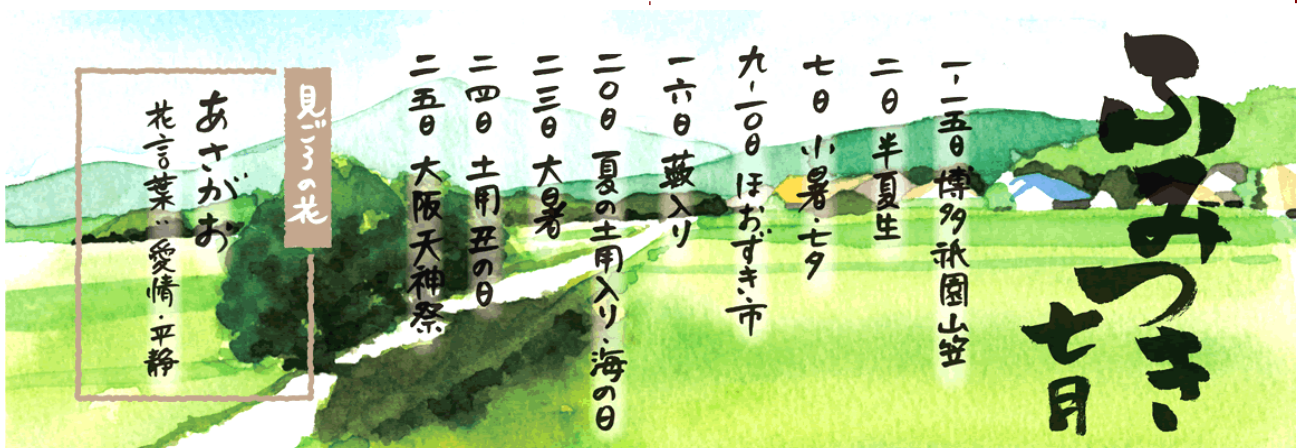 ふみつき
七月
一-一五日 博多祇園山笠
二日 半夏生
七日 小暑・七夕
九-一〇日 ほおずき市
一六日 薮入り
二〇日 夏の土用入り・海の日
二三日 大暑
二四日 土用丑の日
二五日 大阪天神祭
見ごろの花
あさがお
花言葉：愛情・平静